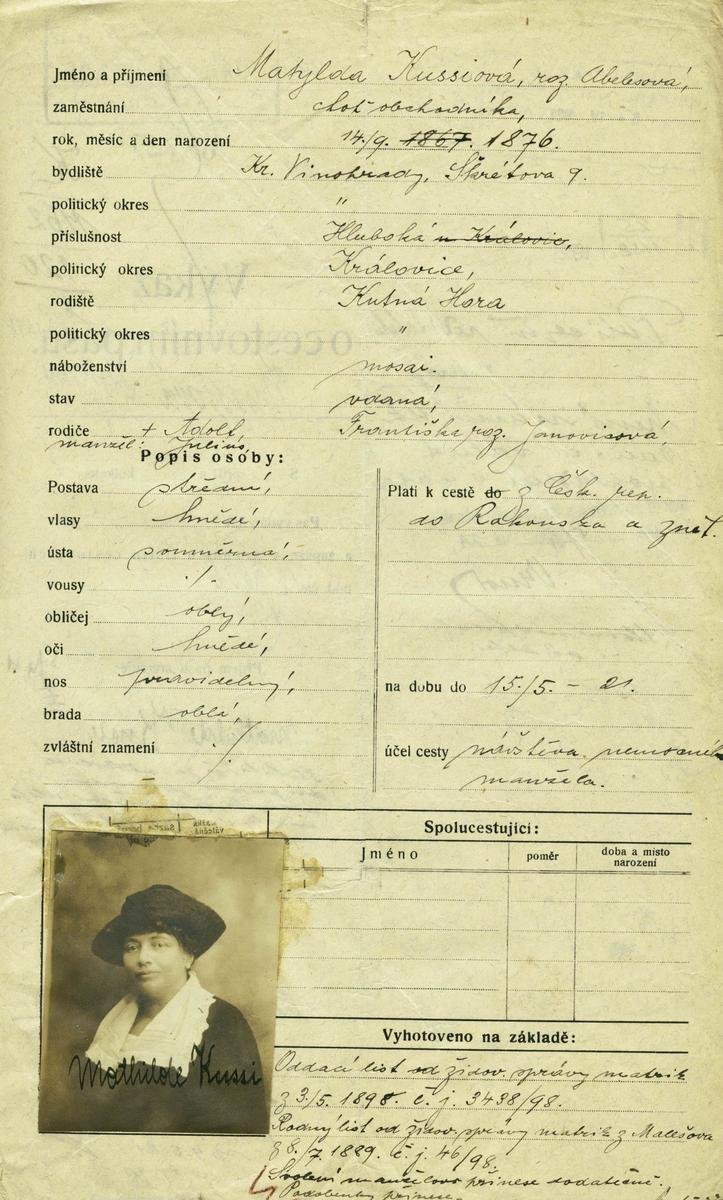 Jméno a příjmení Matylda Kussiová, roz Abelesová,
zaměstnání choť obchodníka,
rok, měsíc a den narození 14./9. 1867. 1876.
bydliště Kr. Vinohrady, Škrétova 9.
politický okres "
příslušnost Hluboká u Královic,
politický okres Královice,
rodiště Kutná Hora
politický okres "
náboženství mosai.
stav vdaná,
rodiče + Adolf, Františka roz. Janovisová,
manžel: Julius,
Popis osoby:
Postava střední,
vlasy hnědé,
ústa souměrná,
vousy ./.
obličej oblý,
oči hnědé,
nos pravidelný,
brada oblá,
zvláštní znamení ./.
Platí k cestě do z Čsh. rep.
do Rakouska a zpět.
na dobu do 15./5. - 21.
účel cesty návštěva nemocného
manžela.
Spolucestující:
Jméno poměr doba a místo narození
Mathilde Kussi
Vyhotoveno na základě:
Oddací list od židov. správy matrik
z 3./5. 1898. č. j. 3438/98.
Rodný list od židov. správy matrik z Malešova
z 8./7. 1889. č. j. 46/98.
Svolení manželovo přinese dodatečně.
Podobenky přinese